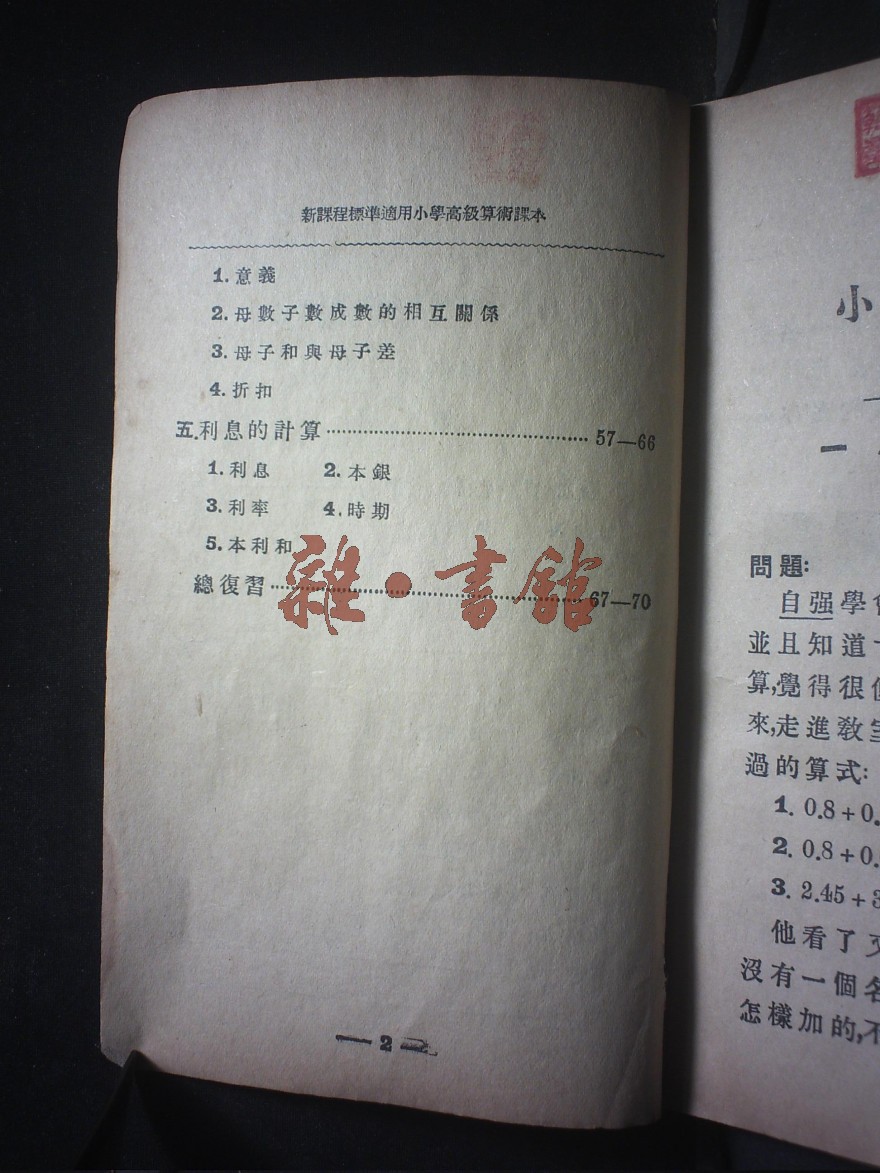 新課程標準適用小學高級算術課本
1.意義
2.母數子數成數的相互關係
3.母子和與母子差
4.折扣
五.利息的計算……57—66
1.利息 2.本銀
3.利率 4.時期
5.本利和
總復習……67—70
雜·書館
— 2 —
小
一
問題:
自强學會
並且知道
算,覺得很
來,走進教室
過的算式:
1. 0.8+0.
2. 0.8+0.
3. 2.45+3
他看了
沒有一個名
怎樣加的,不